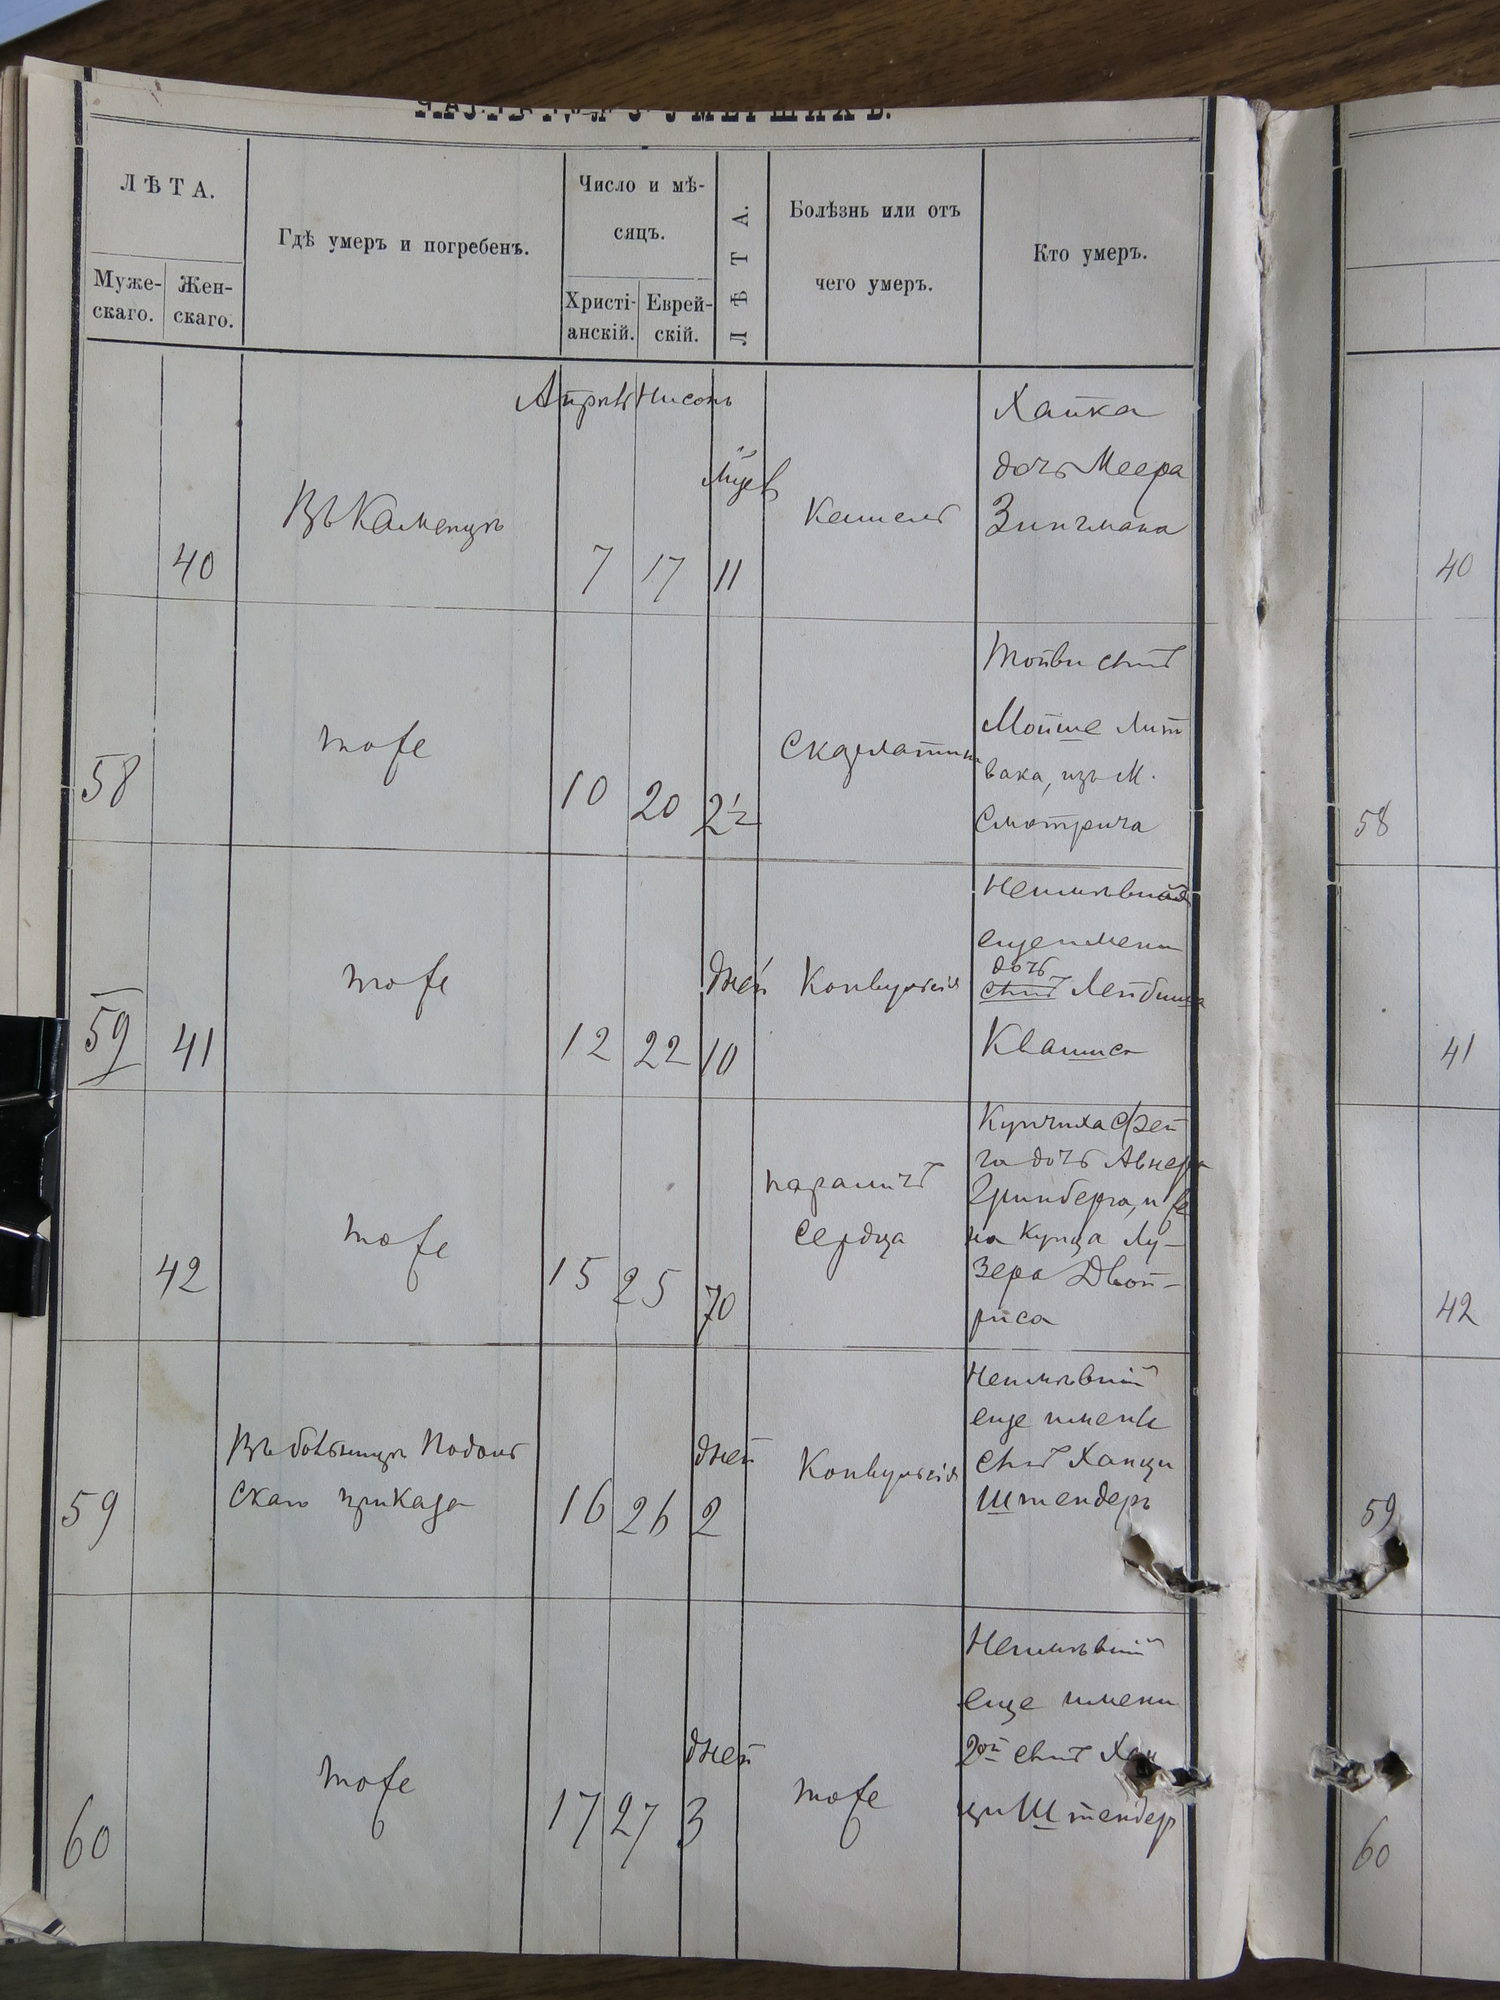 ЧАСТЬ IV-я О УМЕРШИХЪ.
ЛѢТА.
Муже-
скаго.
Жен-
скаго.
Гдѣ умеръ и погребенъ.
Число и мѣ-
сяцъ.
Христі-
анскій.
Еврей-
скій.
ЛѢТА.
Болѣзнь или отъ
чего умеръ.
Кто умеръ.
Апрѣль Нисонъ
40
Въ Каменцѣ
7 17 11
Кашель
Хайка
дочь Меера
Зингмана
40
58
тоже
10 20 2½
Скарлатина
Тойви сынъ
Мойше Лит
вака, изъ М.
Смотрича
58
59 41
тоже
12 22
дней
10
Конвульсія
Неимѣвшая
еще имени
дочь
сынъ Лейбиша
Квашиса
41
42
тоже
15 25 70
параличъ
сердца
Купчиха Фей
га дочь Авнера
Гринберга, и же
на Купца Лу-
зера Двой-
риса
42
59
Въ больницѣ Подоль
скаго приказа
16 26
дней
2
Конвульсія
Неимѣвшій
еще имени
сынъ Ханци
Штендеръ
59
60
тоже
17 27
дней
3
тоже
Неимѣвшій
еще имени
2ой сынъ Хан
ци Штендеръ
60